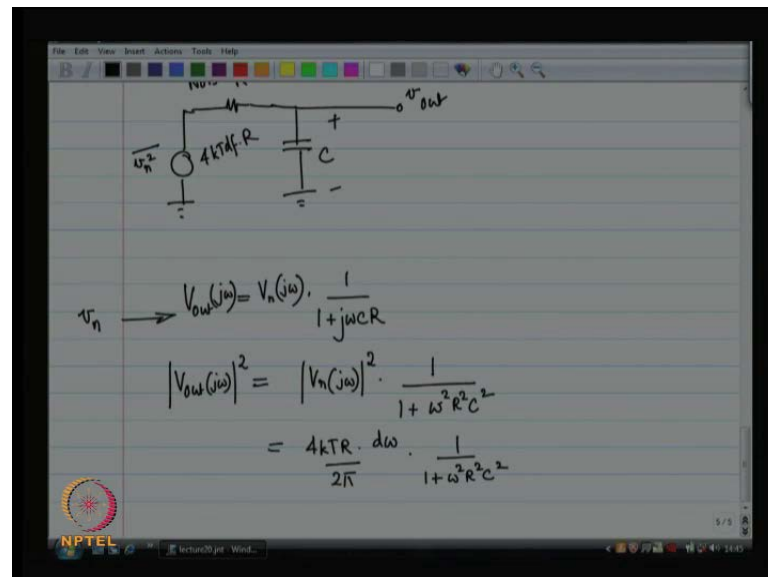 File Edit View Insert Actions Tools Help
B I
R
v out
+
\overline{v_n^2} 4kTdf.R C
-
v_n → V_out(jω) = V_n(jω) . 1/(1+jωCR)
|V_out(jω)|^2 = |V_n(jω)|^2 . 1/(1+ω^2R^2C^2)
= 4kTR/2π . dω . 1/(1+ω^2R^2C^2)
5/5
NPTEL
lecture20.jnt - Wind...
14:45